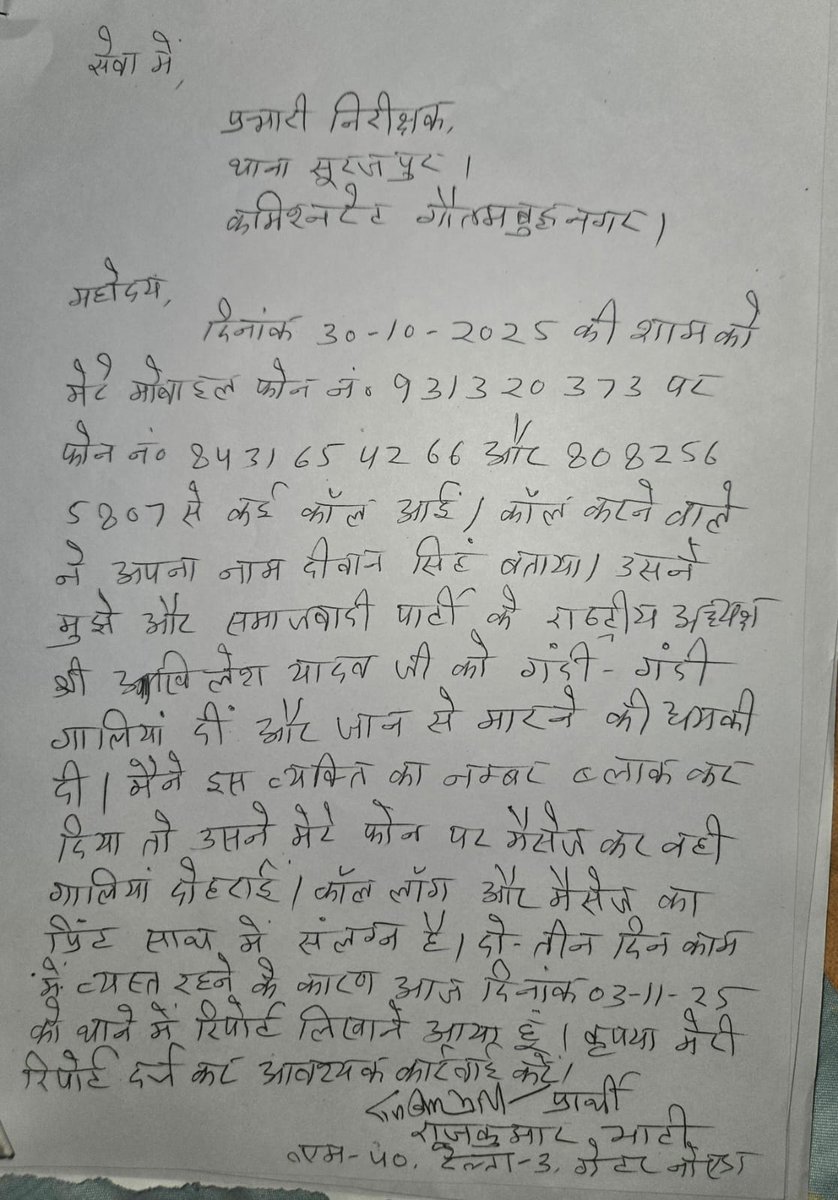 सेवा में,
प्रभारी निरीक्षक,
थाना सूरजपुर।
कमिश्नरेट गौतमबुद्धनगर।
महोदय,
दिनांक 30-10-2025 की शाम को
मेरे मोबाइल फोन नं० 931320373 पर
फोन नं० 8431654266 और 808256
5807 से कई कॉल आईं। कॉल करने वाले
ने अपना नाम दीवान सिंह बताया। उसने
मुझे और समाजवादी पार्टी के राष्ट्रीय अध्यक्ष
श्री अखिलेश यादव जी को गंदी-गंदी
गालियां दीं और जान से मारने की धमकी
दी। मैने इस व्यक्ति का नम्बर ब्लाक कर
दिया तो उसने मेरे फोन पर मैसेज कर वही
गालियां दोहराईं। कॉल लॉग और मैसेज का
प्रिंट साथ में संलग्न है। दो-तीन दिन काम
में व्यस्त रहने के कारण आज दिनांक 03-11-25
को थाने में रिपोर्ट लिखाने आया हूं। कृपया मेरी
रिपोर्ट दर्ज कर आवश्यक कार्रवाई करें।
प्रार्थी
राजकुमार भाटी
एम-40, डेल्टा-3, ग्रेटर नोएडा